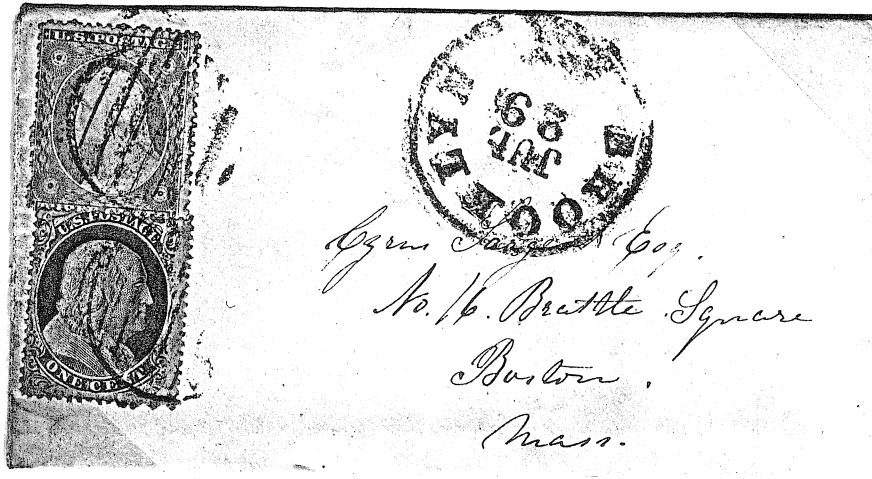 U.S. POSTAGE
U.S. POSTAGE
ONE CENT
BROOKLYN
JUL
29
Cyrus Sargent Esq.
No. 16. Brattle Square
Boston.
Mass.